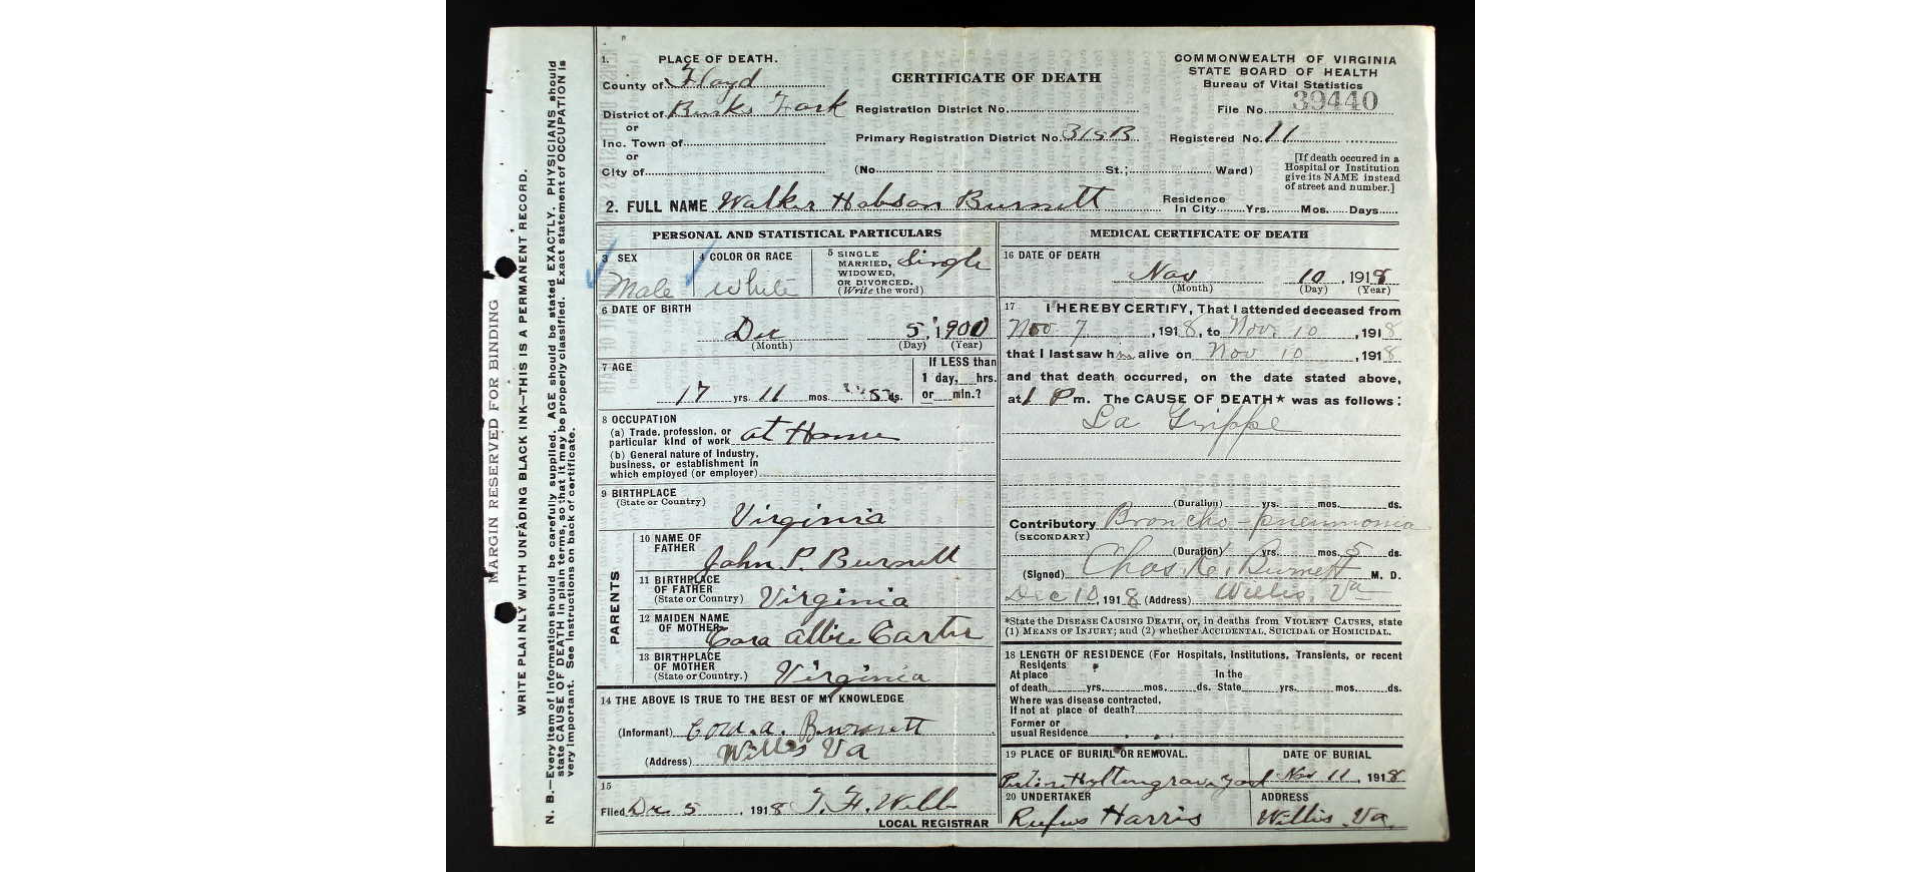 MARGIN RESERVED FOR BINDING
WRITE PLAINLY WITH UNFADING BLACK INK—THIS IS A PERMANENT RECORD.
N. B.—Every item of information should be carefully supplied. AGE should be stated EXACTLY. PHYSICIANS should
state CAUSE OF DEATH in plain terms, so that it may be properly classified. Exact statement of OCCUPATION is
very important. See instructions on back of certificate.
1. PLACE OF DEATH.
County of Floyd
District of Burks Fork
or
Inc. Town of
or
City of
CERTIFICATE OF DEATH
Registration District No.
Primary Registration District No. 315B
(No. St.; Ward)
COMMONWEALTH OF VIRGINIA
STATE BOARD OF HEALTH
Bureau of Vital Statistics
File No. 39440
Registered No. 11
[If death occured in a
Hospital or Institution
give its NAME instead
of street and number.]
2. FULL NAME Walker Hobson Burnett
Residence
In City Yrs. Mos. Days
PERSONAL AND STATISTICAL PARTICULARS
3 SEX
Male
4 COLOR OR RACE
white
5 SINGLE
MARRIED,
WIDOWED,
OR DIVORCED.
(Write the word)
Single
6 DATE OF BIRTH
Dec 5, 1900
(Month) (Day) (Year)
7 AGE
17 yrs. 11 mos. 5 ds.
If LESS than
1 day, hrs.
or min.?
8 OCCUPATION
(a) Trade, profession, or
particular kind of work at Home
(b) General nature of Industry,
business, or establishment in
which employed (or employer)
9 BIRTHPLACE
(State or Country)
Virginia
PARENTS
10 NAME OF
FATHER
John P. Burnett
11 BIRTHPLACE
OF FATHER
(State or Country) Virginia
12 MAIDEN NAME
OF MOTHER
Cora Allie Carter
13 BIRTHPLACE
OF MOTHER
(State or Country.) Virginia
14 THE ABOVE IS TRUE TO THE BEST OF MY KNOWLEDGE
(Informant) Cora. A. Burnett
(Address) Willis Va
15
Filed Dec 5, 1918 T. F. Webb
LOCAL REGISTRAR
MEDICAL CERTIFICATE OF DEATH
16 DATE OF DEATH
Nov 10, 1918
(Month) (Day) (Year)
17 I HEREBY CERTIFY, That I attended deceased from
Nov 7, 1918, to Nov. 10, 1918
that I last saw him alive on Nov 10, 1918
and that death occurred, on the date stated above,
at 1 P m. The CAUSE OF DEATH* was as follows:
La Grippe
(Duration) yrs. mos. ds.
Contributory Broncho-pneumonia
(SECONDARY)
(Duration) yrs. mos. 5 ds.
(Signed) Chas. Burnett M. D.
Dec 10, 1918 (Address) Willis, Va
*State the DISEASE CAUSING DEATH, or, in deaths from VIOLENT CAUSES, state
(1) MEANS OF INJURY; and (2) whether ACCIDENTAL, SUICIDAL or HOMICIDAL.
18 LENGTH OF RESIDENCE (For Hospitals, Institutions, Transients, or recent
Residents
At place In the
of death yrs. mos. ds. State yrs. mos. ds.
Where was disease contracted,
If not at place of death?
Former or
usual Residence
19 PLACE OF BURIAL OR REMOVAL.
Hylton graveyard
DATE OF BURIAL
Nov 11, 1918
20 UNDERTAKER
Rufus Harris
ADDRESS
Willis Va.